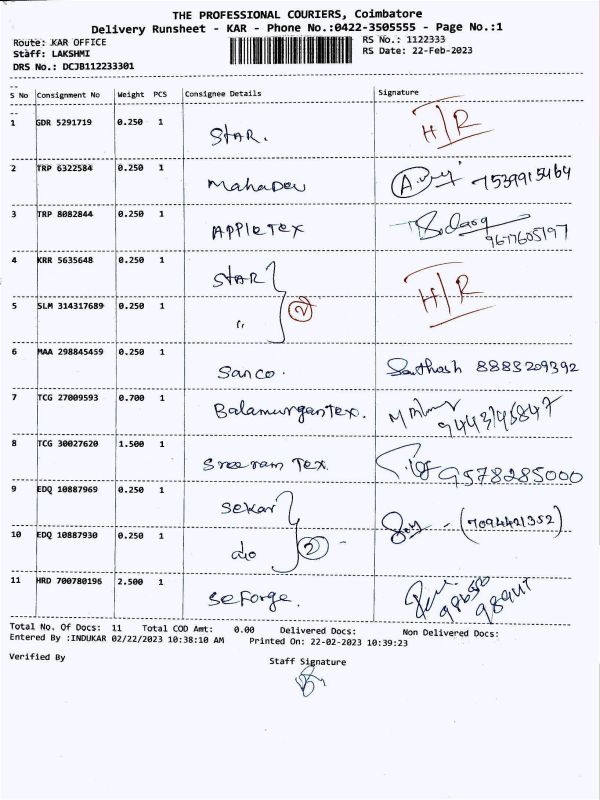 THE PROFESSIONAL COURIERS, Coimbatore
Delivery Runsheet - KAR - Phone No.:0422-3505555 - Page No.:1
Route: KAR OFFICE
RS No.: 1122333
Staff: LAKSHMI
RS Date: 22-Feb-2023
DRS No.: DCJB112233301
S No Consignment No Weight PCS Consignee Details Signature
1 GDR 5291719 0.250 1 STAR. H/R
2 TRP 6322584 0.250 1 Mahadev 7539915464
3 TRP 8082844 0.250 1 AppleTex 9677605197
4 KRR 5635648 0.250 1 STAR H/R
5 SLM 314317689 0.250 1 " 2
6 MAA 298845459 0.250 1 Sanco. Santhosh 8883209392
7 TCG 27009593 0.700 1 BalamuruganTex. 9443145847
8 TCG 30027620 1.500 1 Sreeram Tex. 9578285000
9 EDQ 10887969 0.250 1 Sekar (7094421352)
10 EDQ 10887930 0.250 1 do 2 -
11 HRD 700780196 2.500 1 SeForge.
Total No. Of Docs: 11 Total COD Amt: 0.00 Delivered Docs: Non Delivered Docs:
Entered By :INDUKAR 02/22/2023 10:38:10 AM Printed On: 22-02-2023 10:39:23
Verified By
Staff Signature